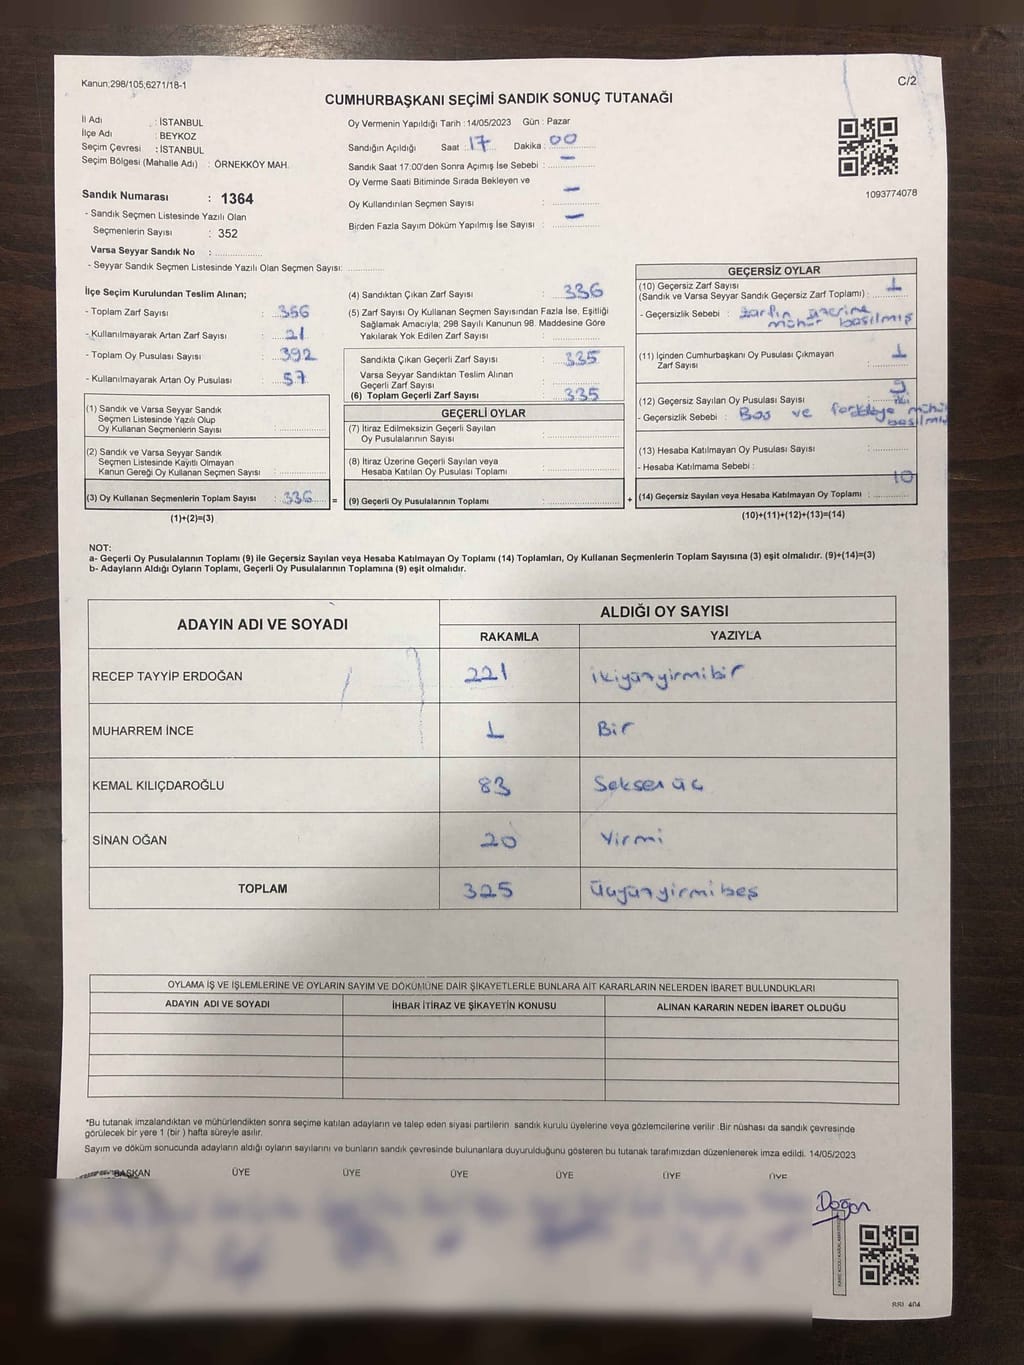 Kanun;298/105,6271/18-1
C/2
CUMHURBAŞKANI SEÇİMİ SANDIK SONUÇ TUTANAĞI
İl Adı : İSTANBUL
İlçe Adı : BEYKOZ
Seçim Çevresi : İSTANBUL
Seçim Bölgesi (Mahalle Adı) : ÖRNEKKÖY MAH.
Sandık Numarası : 1364
- Sandık Seçmen Listesinde Yazılı Olan
Seçmenlerin Sayısı : 352
Varsa Seyyar Sandık No :
- Seyyar Sandık Seçmen Listesinde Yazılı Olan Seçmen Sayısı:
Oy Vermenin Yapıldığı Tarih : 14/05/2023 Gün : Pazar
Sandığın Açıldığı Saat : 17 Dakika : 00
Sandık Saat 17:00'den Sonra Açımış İse Sebebi : -
Oy Verme Saati Bitiminde Sırada Bekleyen ve
Oy Kullandırılan Seçmen Sayısı : -
Birden Fazla Sayım Döküm Yapılmış İse Sayısı : -
1093774078
İlçe Seçim Kurulundan Teslim Alınan;
- Toplam Zarf Sayısı : 356
- Kullanılmayarak Artan Zarf Sayısı : 21
- Toplam Oy Pusulası Sayısı : 392
- Kullanılmayarak Artan Oy Pusulası : 57
(1) Sandık ve Varsa Seyyar Sandık
Seçmen Listesinde Yazılı Olup
Oy Kullanan Seçmenlerin Sayısı :
(2) Sandık ve Varsa Seyyar Sandık
Seçmen Listesinde Kayıtlı Olmayan
Kanun Gereği Oy Kullanan Seçmen Sayısı :
(3) Oy Kullanan Seçmenlerin Toplam Sayısı : 336 =
(1)+(2)=(3)
(4) Sandıktan Çıkan Zarf Sayısı : 336
(5) Zarf Sayısı Oy Kullanan Seçmen Sayısından Fazla İse, Eşitliği
Sağlamak Amacıyla; 298 Sayılı Kanunun 98. Maddesine Göre
Yakılarak Yok Edilen Zarf Sayısı :
Sandıkta Çıkan Geçerli Zarf Sayısı : 335
Varsa Seyyar Sandıktan Teslim Alınan
Geçerli Zarf Sayısı :
(6) Toplam Geçerli Zarf Sayısı : 335
GEÇERLİ OYLAR
(7) İtiraz Edilmeksizin Geçerli Sayılan
Oy Pusulalarının Sayısı :
(8) İtiraz Üzerine Geçerli Sayılan veya
Hesaba Katılan Oy Pusulası Toplamı :
(9) Geçerli Oy Pusulalarının Toplamı : +
GEÇERSİZ OYLAR
(10) Geçersiz Zarf Sayısı 1
(Sandık ve Varsa Seyyar Sandık Geçersiz Zarf Toplamı) :
- Geçersizlik Sebebi : zarfın üzerine
mühür basılmış
(11) İçinden Cumhurbaşkanı Oy Pusulası Çıkmayan 1
Zarf Sayısı :
(12) Geçersiz Sayılan Oy Pusulası Sayısı :
- Geçersizlik Sebebi : Boş ve fazlaya mühür
basılmış
(13) Hesaba Katılmayan Oy Pusulası Sayısı :
- Hesaba Katılmama Sebebi :
10
(14) Geçersiz Sayılan veya Hesaba Katılmayan Oy Toplamı :
(10)+(11)+(12)+(13)=(14)
NOT:
a- Geçerli Oy Pusulalarının Toplamı (9) ile Geçersiz Sayılan veya Hesaba Katılmayan Oy Toplamı (14) Toplamları, Oy Kullanan Seçmenlerin Toplam Sayısına (3) eşit olmalıdır. (9)+(14)=(3)
b- Adayların Aldığı Oyların Toplamı, Geçerli Oy Pusulalarının Toplamına (9) eşit olmalıdır.
ADAYIN ADI VE SOYADI
ALDIĞI OY SAYISI
RAKAMLA YAZIYLA
RECEP TAYYİP ERDOĞAN 221 ikiyüzyirmibir
MUHARREM İNCE 1 Bir
KEMAL KILIÇDAROĞLU 83 Seksen üç
SİNAN OĞAN 20 Yirmi
TOPLAM 325 Üçyüzyirmibeş
OYLAMA İŞ VE İŞLEMLERİNE VE OYLARIN SAYIM VE DÖKÜMÜNE DAİR ŞİKAYETLERLE BUNLARA AİT KARARLARIN NELERDEN İBARET BULUNDUKLARI
ADAYIN ADI VE SOYADI İHBAR İTİRAZ VE ŞİKAYETİN KONUSU ALINAN KARARIN NEDEN İBARET OLDUĞU
*Bu tutanak imzalandıktan ve mühürlendikten sonra seçime katılan adayların ve talep eden siyasi partilerin sandık kurulu üyelerine veya gözlemcilerine verilir .Bir nüshası da sandık çevresinde
görülecek bir yere 1 (bir ) hafta süreyle asılır.
Sayım ve döküm sonucunda adayların aldığı oyların sayılarını ve bunların sandık çevresinde bulunanlara duyurulduğunu gösteren bu tutanak tarafımızdan düzenlenerek imza edildi. 14/05/2023
BAŞKAN ÜYE ÜYE ÜYE ÜYE ÜYE ÜYE
Doğan